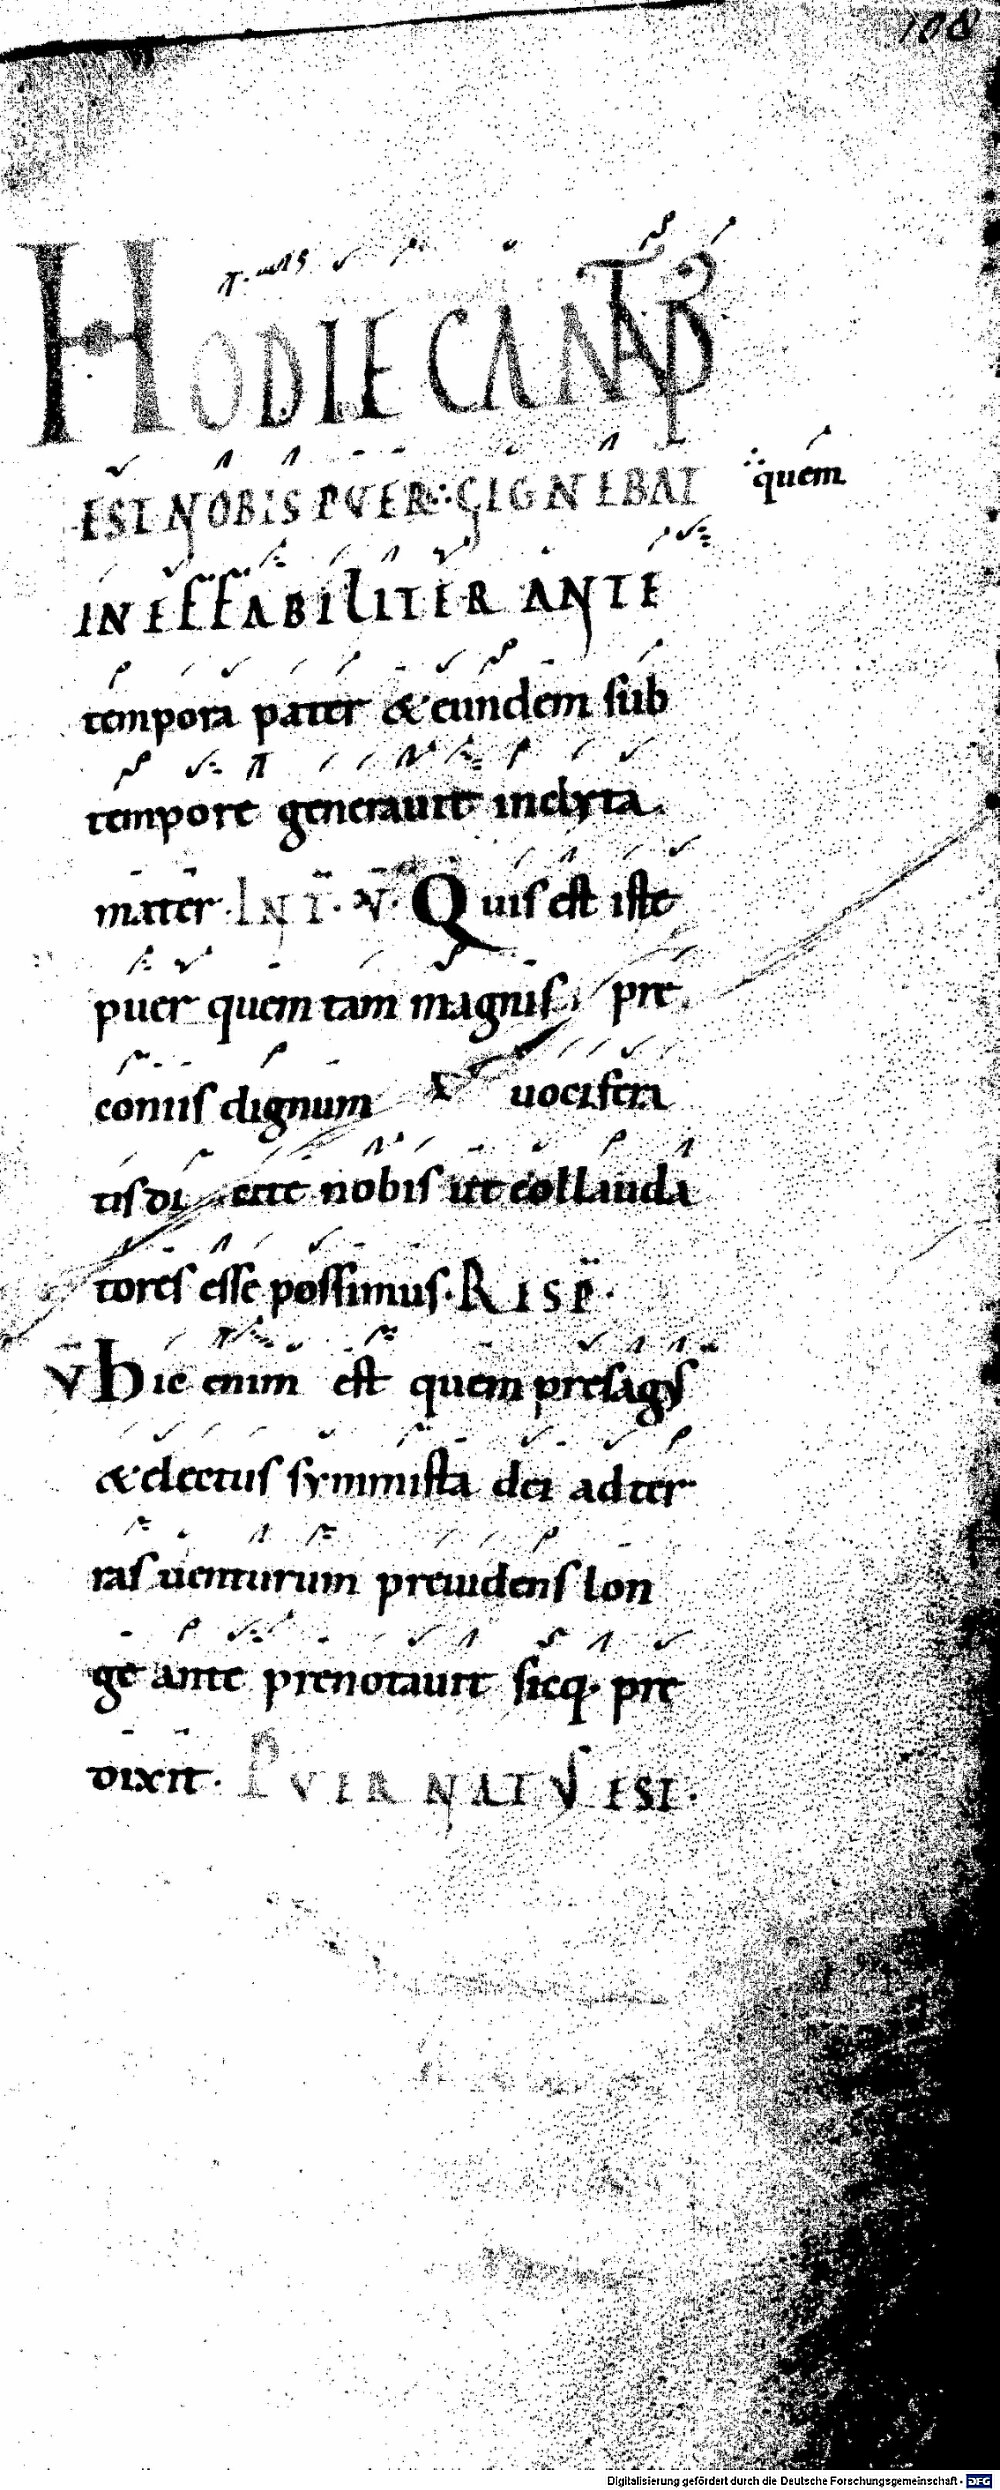 108
HODIE CANTAND'
EST NOBIS PUER ∴ GIGNEBAT ∴ quem
INEFFABILITER ANTE
tempora pater & eundem sub
tempore generauit inclyta
mater · INT · V · Quis est iste
puer quem tam magnis pre
coniis dignum uocifera
tis di cite nobis ut collauda
tores esse possimus · RISP ·
V hic enim est quem presagys
& electus symmista dei ad ter
ras uenturum preuidens lon
ge ante prenotauit sicq· pre
dixit · PUER NATUS EST ·
Digitalisierung gefördert durch die Deutsche Forschungsgemeinschaft - DFG